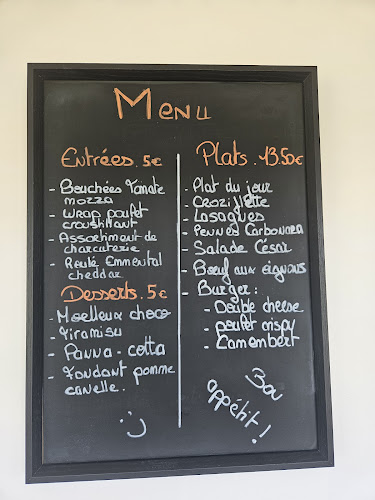 Menu
Entrées. 5€
- Bouchées Tomate
mozza
- Wrap poulet
croustillant
- Assortiment de
charcuterie
- Roulé Emmental
cheddar
Desserts. 5€
- Moelleux choco
- Tiramisu
- Panna-cotta
- Fondant pomme
canelle.
:)
Plats. 13.50€
- Plat du jour
- Croziflette
- Lasagnes
- Pennes Carbonara
- Salade César
- Bœuf aux oignons
- Burger:
- Double cheese
- poulet crispy
- Camembert
Bon
appétit!